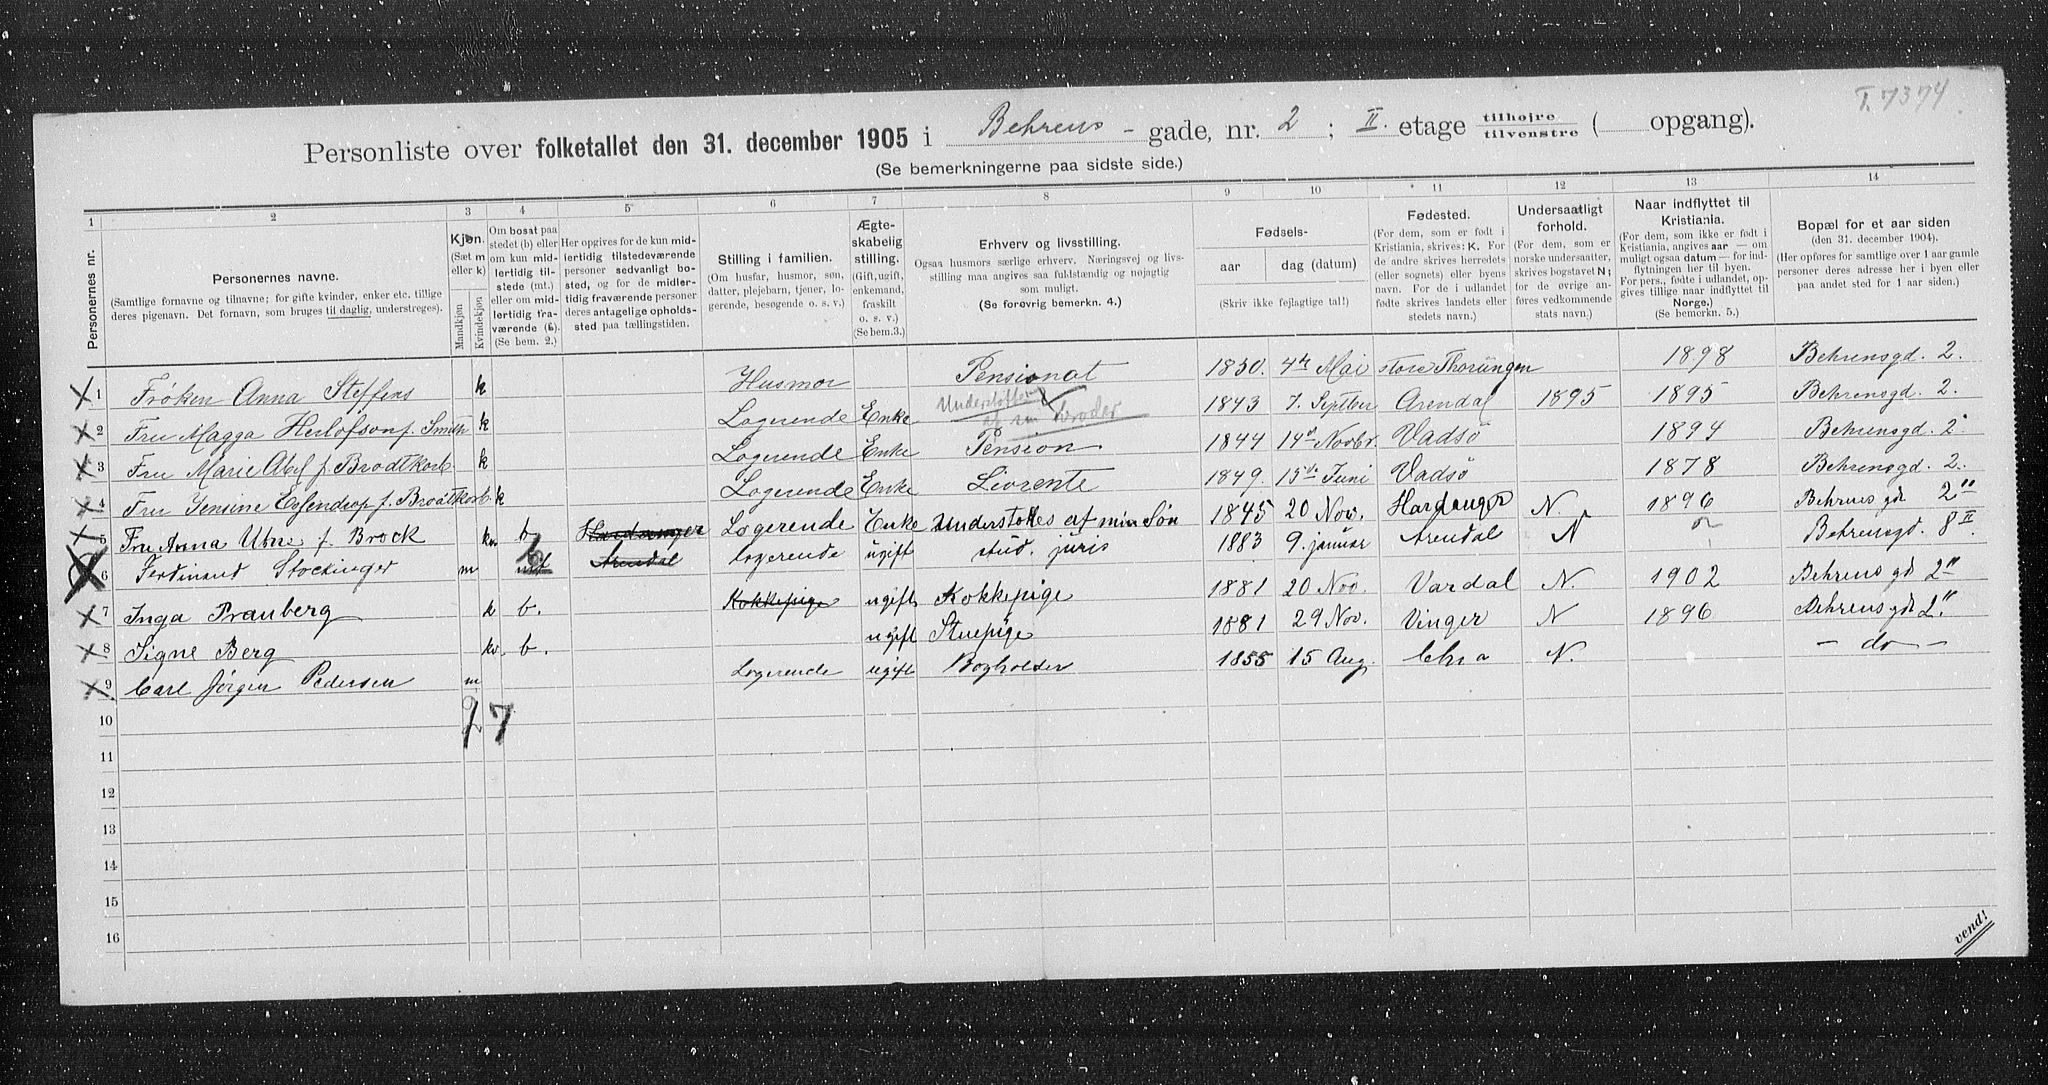 T. 7374
Personliste over folketallet den 31. december 1905 i Behrens - gade, nr. 2 ; II. etage tilhøjre tilvenstre ( opgang).
(Se bemerkningerne paa sidste side.)
1 2 3 4 5 6 7 8 9 10 11 12 13 14
Personernes nr.
Personernes navne.
(Samtlige fornavne og tilnavne; for gifte kvinder, enker etc. tillige deres pigenavn. Det fornavn, som bruges til daglig, understreges).
Kjøn.
(Sæt m eller k)
Mandkjøn
Kvindekjøn
Om bosat paa stedet (b) eller om kun midlertidig tilstede (mt.) eller om midlertidig fraværende (f).
(Se bem. 2.)
Her opgives for de kun midlertidig tilstedeværende personer sedvanligt bosted, og for de midlertidig fraværende personer deres antagelige opholdssted paa tællingstiden.
Stilling i familien.
(Om husfar, husmor, søn, datter, plejebarn, tjener, logerende, besøgende o. s. v.)
Ægteskabelig stilling.
(Gift, ugift, enkemand, fraskilt o. s. v.)
(Se bem.3.)
Erhverv og livsstilling.
Ogsaa husmors særlige erhverv. Næringsvej og livsstilling maa angives saa fuldstændig og nøjagtig som muligt.
(Se forøvrig bemerkn. 4.)
Fødsels-
aar
dag (datum)
(Skriv ikke fejlagtige tal!)
Fødested.
(For dem, som er født i Kristiania, skrives: K. For de andre skrives herredets (eller sognets) eller byens navn. For de i udlandet fødte skrives landets eller stedets navn.)
Undersaatligt forhold.
(For dem, som er norske undersaatter, skrives bogstavet N; for de øvrige angives vedkommende stats navn.)
Naar indflyttet til Kristiania.
(For dem, som ikke er født i Kristiania, angives aar — om muligt ogsaa datum — for indflytningen her til byen. For pers., fødte i udlandet, opgives tillige naar indflyttet til Norge.)
(Se bemerkn. 5.)
Bopæl for et aar siden
(den 31. december 1904).
(Her opføres for samtlige over 1 aar gamle personer deres adresse her i byen eller paa andet sted for 1 aar siden.)
1 Frøken Anna Steffens k Husmor Pensionat 1850. 4de Mai store Thorungen 1898 Behrensgd. 2.
2 Fru Magga Herlofson f. Smith k Logerende Enke Understøttes af en broder 1843 7. Septber Arendal 1895 1895 Behrensgd. 2.
3 Fru Marie Abel f Brodtkorb k Logerende Enke Pension 1844 14de Novbr. Vadsö 1894 Behrensgd. 2.
4 Fru Jensine Esendrop f. Brodtkorb k Logerende Enke Livrente 1849. 15de Juni Vadsö 1878 Behrensgd. 2.
5 Fru Anna Utne f. Brock kv. b Hardanger Logerende Enke Understøttes af min Søn 1845 20 Nov. Hardanger N. 1896 Behrens gd 2"
6 Ferdinand Stockinger m mt b Arendal logerende ugift stud. juris 1883 9. januar Arendal N Behrensgd. 8 II.
7 Inga Pranberg k b. Kokkepige ugift Kokkepige 1881 20 Nov. Vardal N. 1902 Behrens gd 2"
8 Signe Berg kv. b. ugift Stuepige 1881 29 Nov. Vinger N 1896 Behrens gd 2."
9 Carl Jörgen Pedersen m Logerende ugift Bogholder 1855 15 Aug. Chra N. - do -
2 7
10
11
12
13
14
15
16
vend!